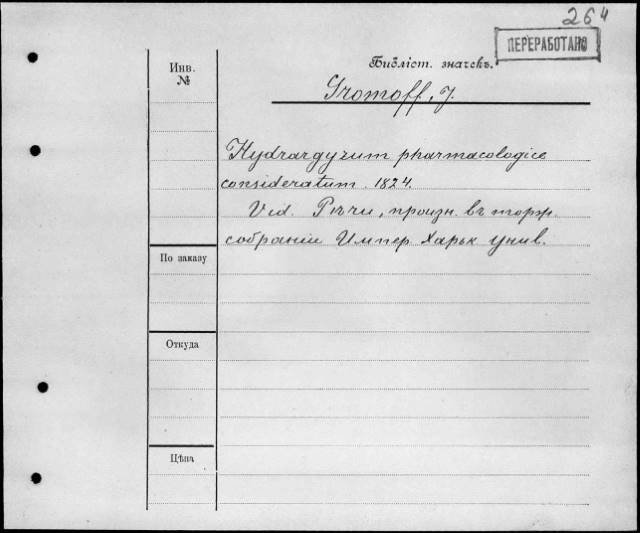 264
ПЕРЕРАБОТАНО
Инв.
№
Библіот. значекъ.
Gromoff, J.
Hydrargyrum pharmacologice
consideratum. 1824.
Vid. Рѣчи, произн. въ торж.
собраніи Импер Харьк унив.
По заказу
Откуда
Цѣна